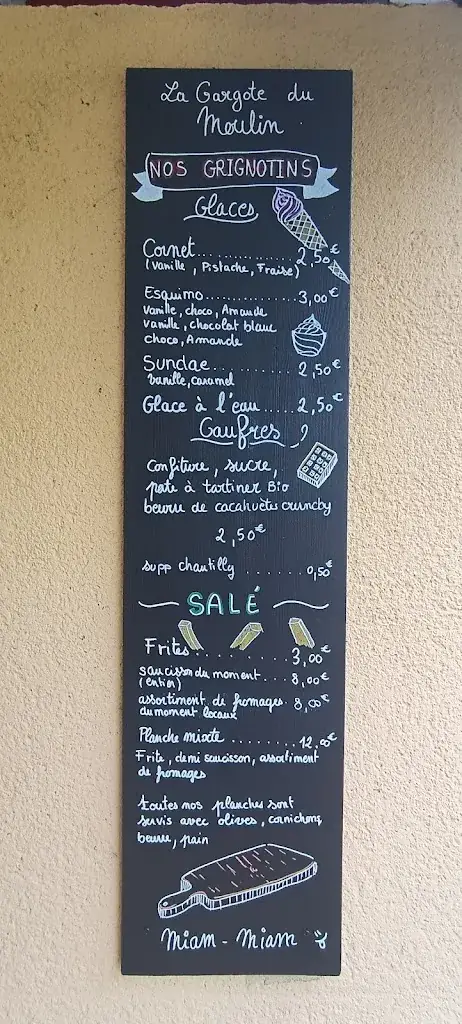 La Gargote du
Moulin
NOS GRIGNOTINS
Glaces
Cornet.................2,50€
(Vanille, Pistache, Fraise)
Esquimo................3,00€
Vanille, choco, Amande
vanille, chocolat blanc
choco, Amande
Sundae................2,50€
Vanille, caramel
Glace à l'eau.....2,50€
Gaufres
confiture, sucre,
pate à tartiner Bio
beurre de cacahuètes crunchy
2,50€
supp chantilly........0,50€
SALÉ
Frites................3,00€
saucisson du moment....8,00€
(entier)
assortiment de fromages 8,00€
du moment locaux
Planche mixte.........12,00€
Frite, demi saucisson, assortiment
de fromages
toutes nos planches sont
servis avec olives, cornichons,
beurre, pain
Miam - Miam